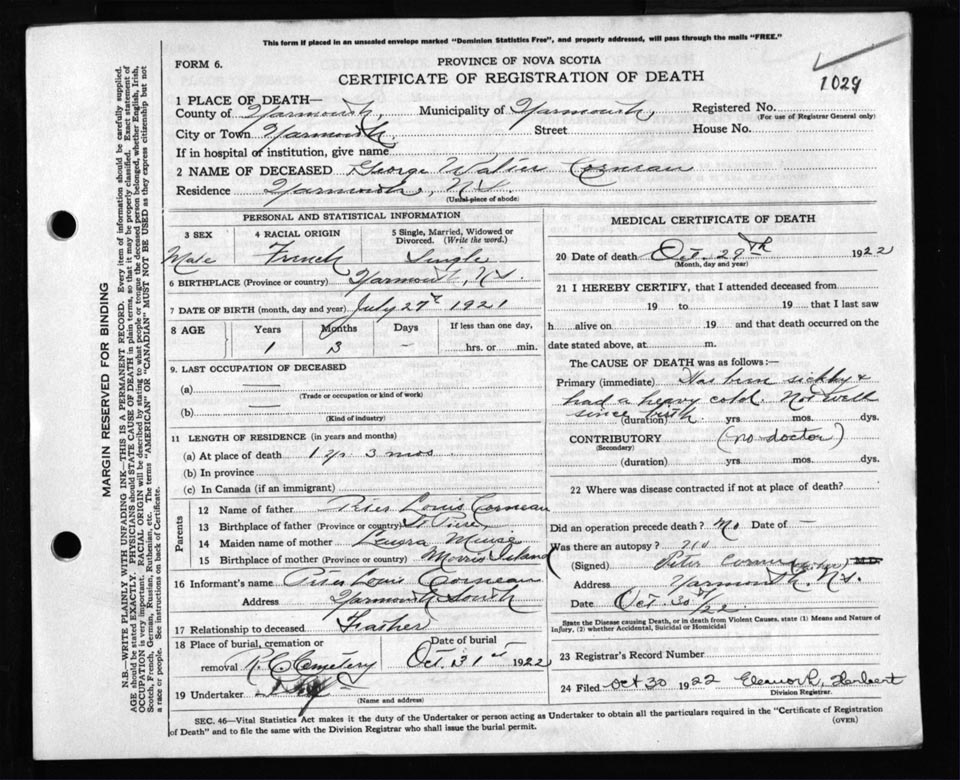 This form if placed in an unsealed envelope marked "Dominion Statistics Free", and properly addressed, will pass through the mails "FREE."
FORM 6.
PROVINCE OF NOVA SCOTIA
CERTIFICATE OF REGISTRATION OF DEATH
1029
1 PLACE OF DEATH—
County of Yarmouth, Municipality of Yarmouth, Registered No.
(For use of Registrar General only)
City or Town Yarmouth, Street House No.
If in hospital or institution, give name
2 NAME OF DECEASED George Walter Corneau
Residence Yarmouth, N.S.
(Usual place of abode)
PERSONAL AND STATISTICAL INFORMATION
3 SEX 4 RACIAL ORIGIN 5 Single, Married, Widowed or Divorced. (Write the word.)
Male French Single
6 BIRTHPLACE (Province or country) Yarmouth, N.S.
7 DATE OF BIRTH (month, day and year) July 27th 1921
8 AGE Years Months Days If less than one day,
1 3 — hrs. or min.
9. LAST OCCUPATION OF DECEASED
(a) ——
(Trade or occupation or kind of work)
(b) ——
(Kind of industry)
11 LENGTH OF RESIDENCE (in years and months)
(a) At place of death 1 yr. 3 mos
(b) In province
(c) In Canada (if an immigrant)
Parents
12 Name of father Louis Corneau
13 Birthplace of father (Province or country)
14 Maiden name of mother Laura Muise
15 Birthplace of mother (Province or country) Morris Island
16 Informant's name Louis Corneau
Address Yarmouth South
17 Relationship to deceased Father
18 Place of burial, cremation or removal R.C. Cemetery
Date of burial Oct. 31st 1922
19 Undertaker
(Name and address)
MEDICAL CERTIFICATE OF DEATH
20 Date of death Oct. 29th 1922
(Month, day and year)
21 I HEREBY CERTIFY, that I attended deceased from
19 to 19 that I last saw
h alive on 19 and that death occurred on the
date stated above, at m.
The CAUSE OF DEATH was as follows:—
Primary (immediate) Has been sickly &
had a heavy cold. Not well
since birth.
(duration) yrs mos. dys.
CONTRIBUTORY (no doctor)
(Secondary)
(duration) yrs mos. dys.
22 Where was disease contracted if not at place of death?
Did an operation precede death? No Date of —
Was there an autopsy? no
(Signed) Peter M.D.
Address Yarmouth. N.S.
Date Oct. 30th/22.
State the Disease causing Death, or in death from Violent Causes, state (1) Means and Nature of
Injury, (2) whether Accidental, Suicidal or Homicidal
23 Registrar's Record Number
24 Filed Oct 30 1922 Herbert
Division Registrar.
SEC. 46—Vital Statistics Act makes it the duty of the Undertaker or person acting as Undertaker to obtain all the particulars required in the "Certificate of Registration
of Death" and to file the same with the Division Registrar who shall issue the burial permit.
(OVER)
MARGIN RESERVED FOR BINDING
N.B.—WRITE PLAINLY WITH UNFADING INK—THIS IS A PERMANENT RECORD. Every item of information should be carefully supplied.
AGE should be stated EXACTLY. PHYSICIANS should STATE CAUSE OF DEATH in plain terms, so that it may be properly classified. Exact statement of
OCCUPATION is very important. RACIAL ORIGIN will be described by stating to what people or tongue the deceased person belonged, whether English, Irish,
Scotch, French, German, Russian, Ruthenian, etc. The terms "AMERICAN" or "CANADIAN" MUST NOT BE USED as they express citizenship but not
a race or people. See instructions on back of Certificate.